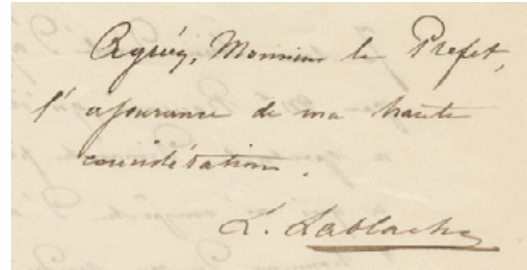 Agréez, Monsieur le Préfet,
l'assurance de ma haute
considération.
L. Lablache